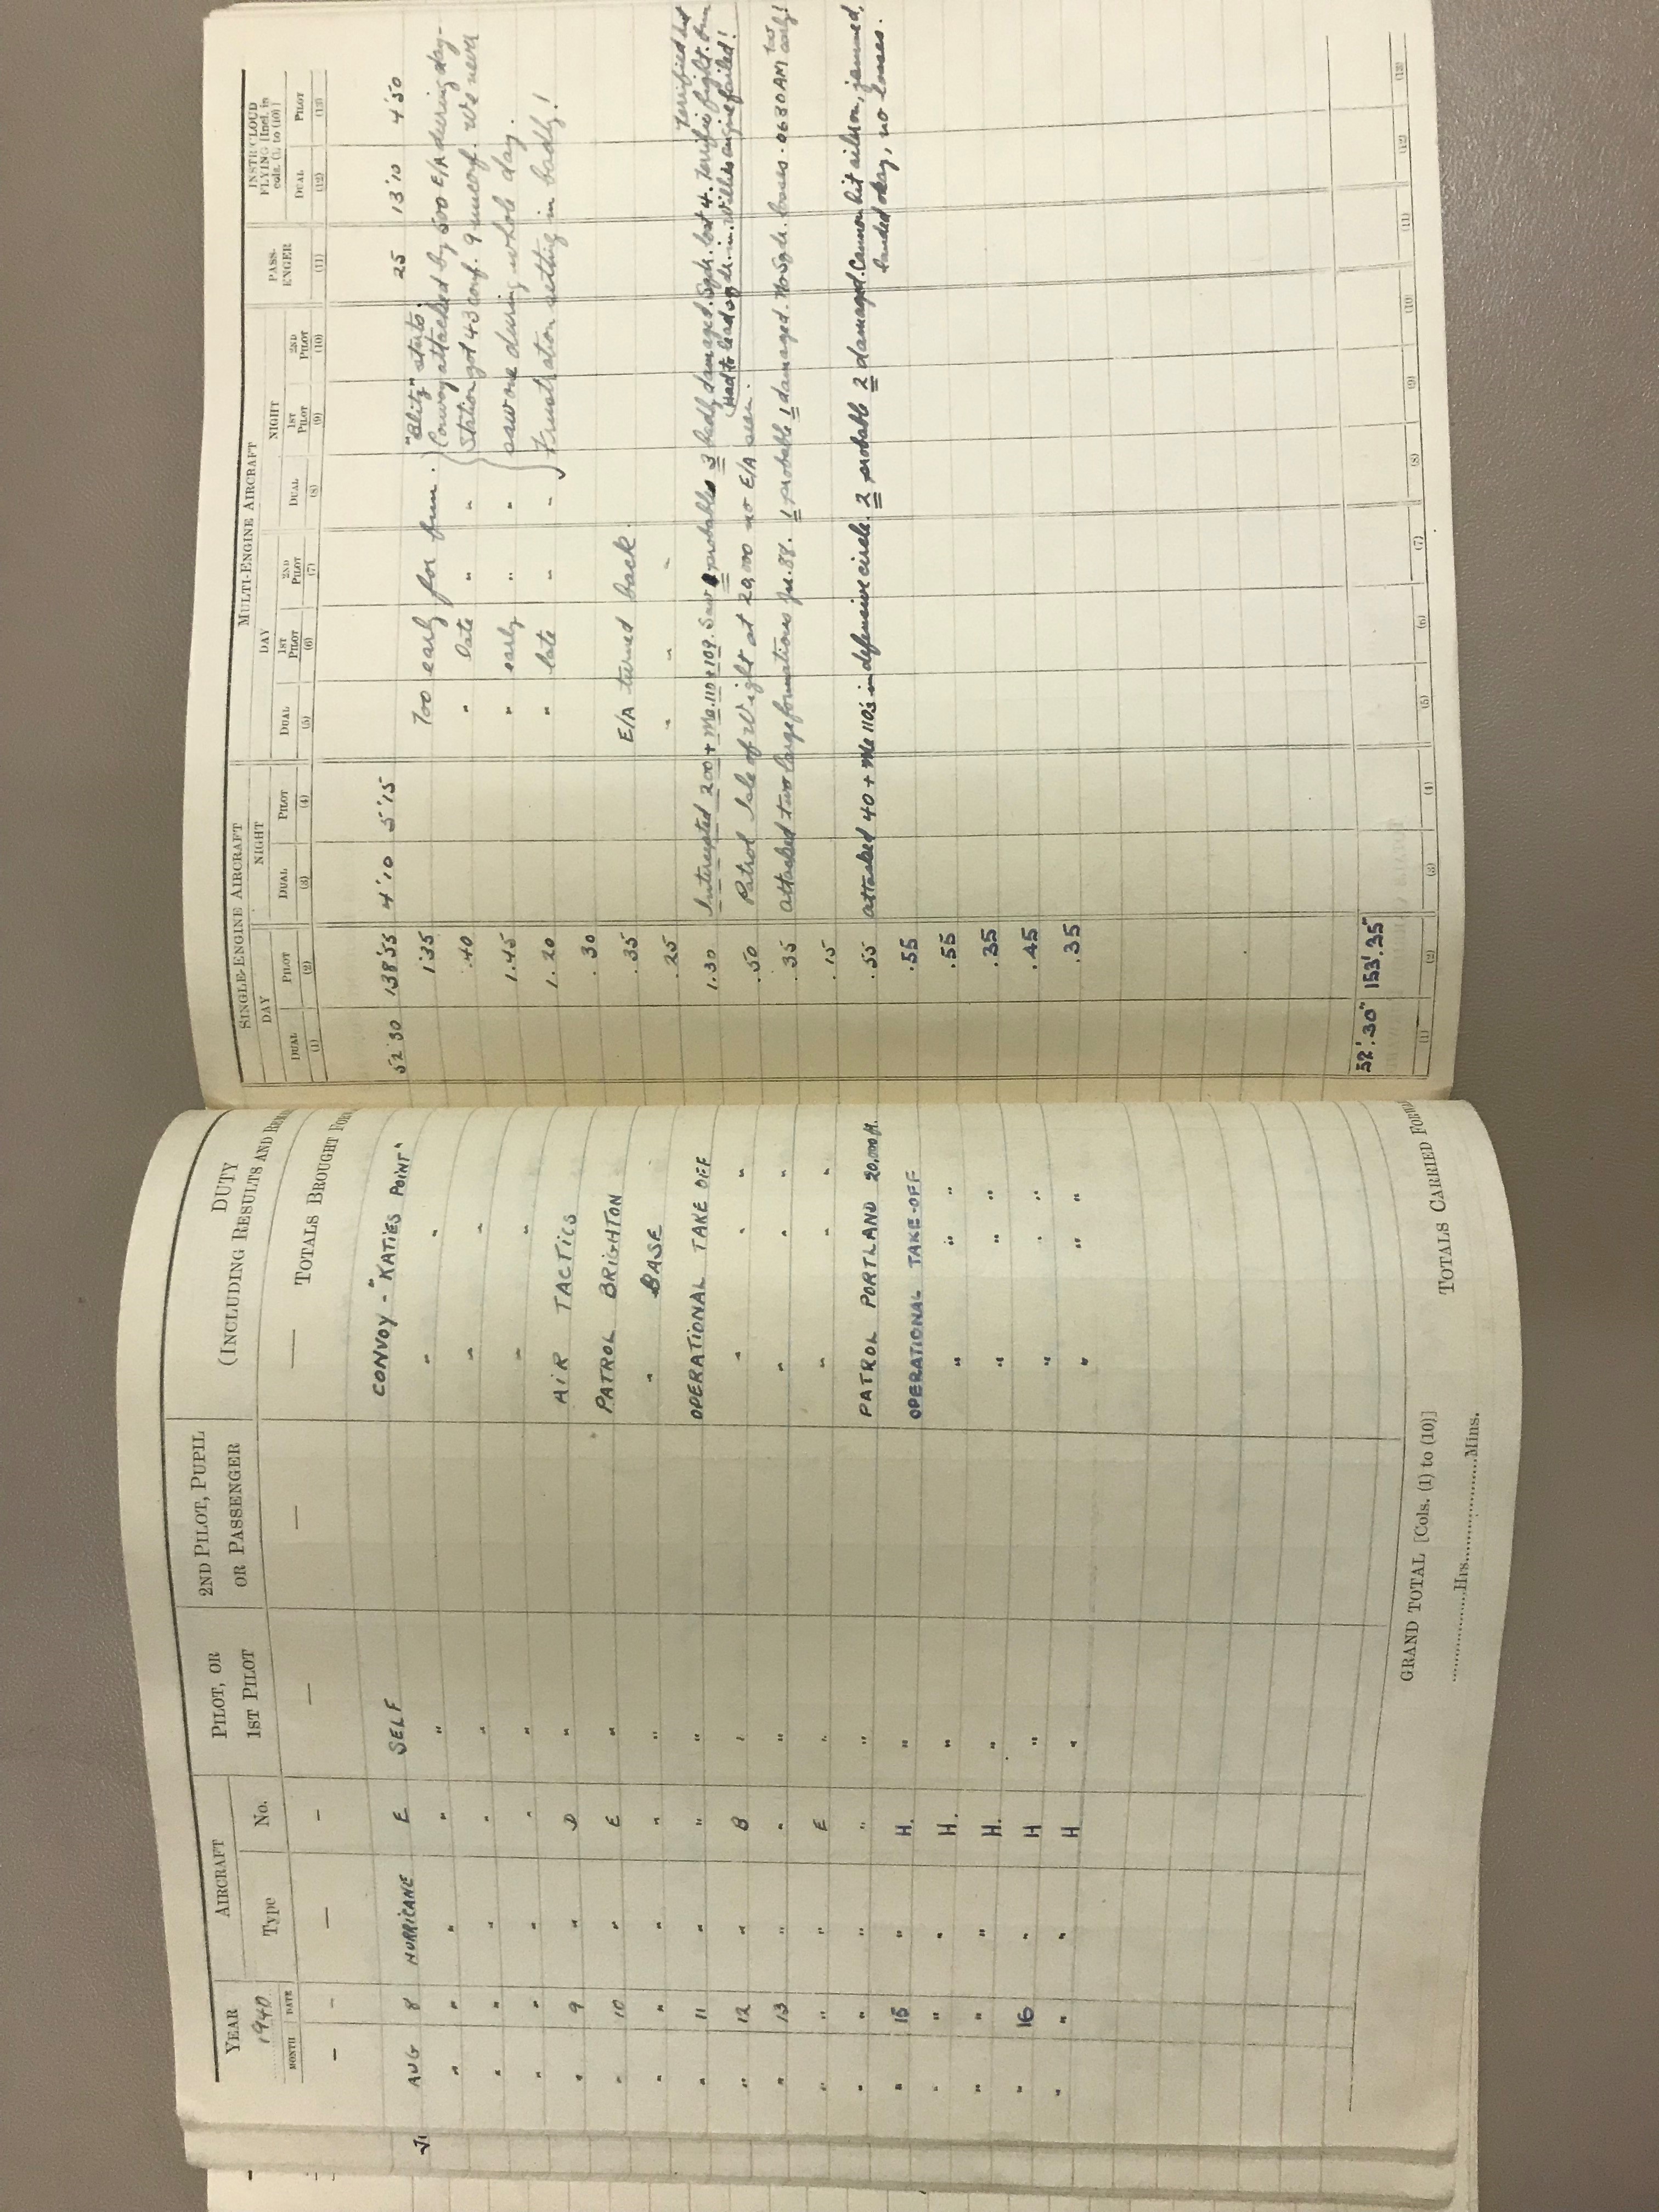 YEAR AIRCRAFT PILOT, OR 1ST PILOT 2ND PILOT, PUPIL OR PASSENGER DUTY (INCLUDING RESULTS AND
1940 MONTH DATE Type No.
— — — — — — — TOTALS BROUGHT
AUG 8 HURRICANE E SELF CONVOY - "KATIES POINT"
" " " " " " "
" " " " " " "
" " " " " " "
" 9 " D " AIR TACTICS
" 10 " E " PATROL BRIGHTON
" " " " " " BASE
" 11 " " " OPERATIONAL TAKE OFF
" 12 " B " " " "
" 13 " " " " " "
" " " E " " " "
" " " " " PATROL PORTLAND 20,000 ft.
" 15 " H. " OPERATIONAL TAKE-OFF
" " " H. " " " "
" " " H. " " " "
" 16 " H " " " "
" " " H " " " "
GRAND TOTAL [Cols. (1) to (10)]
Hrs. Mins.
TOTALS CARRIED
SINGLE-ENGINE AIRCRAFT MULTI-ENGINE AIRCRAFT PASS-ENGER INSTR/CLOUD FLYING [Incl. in cols. (1) to (10)]
DAY NIGHT DAY NIGHT
DUAL PILOT DUAL PILOT DUAL 1ST PILOT 2ND PILOT DUAL 1ST PILOT 2ND PILOT DUAL PILOT
(1) (2) (3) (4) (5) (6) (7) (8) (9) (10) (11) (12) (13)
52'30 138'55 4'10 5'15 25 13'10 4'50
"Blitz" starts.
1.35 Too early for fun. Convoy attacked by 500 E/A during day-
.40 " late " " Station got 43 conf. 9 unconf. We never
1.45 " early " " saw one during whole day.
1.20 " late " " Frustration setting in badly!
.30
.35 E/A turned back.
.25 " " "
1.30 Intercepted 200 + Me.110 + 109. Saw probables 3 badly damaged. Sqdn. lost 4. Terrific fight. fun
Terrified but
Had to lead sqdn. in. Willis engine failed!
.50 Patrol Isle of Wight at 20,000 no E/A seen.
.35 Attacked two large formations Ju. 88. 1 probable 1 damaged. No Sqdn. losses. 0630 AM Too early!
.15
.55 Attacked 40 + Me 110s in defensive circle. 2 probable 2 damaged. Cannon hit aileron, jammed,
landed okay, no losses.
.55
.55
.35
.45
.35
52'.30" 153'.35"
(1) (2) (3) (4) (5) (6) (7) (8) (9) (10) (11) (12) (13)